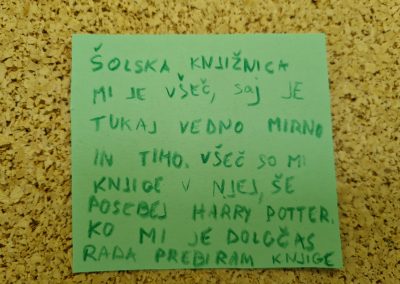 ŠOLSKA KNJIŽNICA
MI JE VŠEČ, saj JE
TUKAJ VEDNO MIRNO
IN TIHO. VŠEČ SO MI
KNJIGE V NJEJ, ŠE
POSEBEJ HARRY POTTER.
KO MI JE DOLGČAS
RADA PREBIRAM KNJIGE